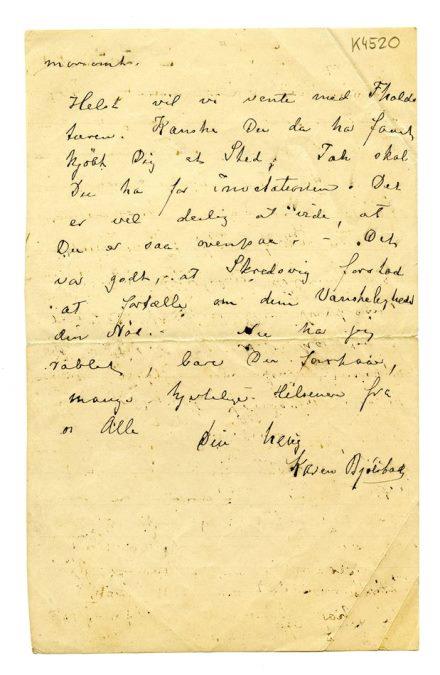 K4520
morsomt.
Helst vil vi vente med Tholds
turen. Kanske Du da ha faaet
kjöbt Dig et Sted, Tak skal
Du ha for invitationen. Det
er vel deilig at vide, at
Du er saa ovenpaa. – Det
var godt, at Skredsvig forstod
at fortælle om dine Vanskeligheder
din Nöd. Nu ha jeg
rablet, bare Du forstaar,
mange hjertelige Hilsener fra
os Alle
Din heng.
Karen Bjölstad